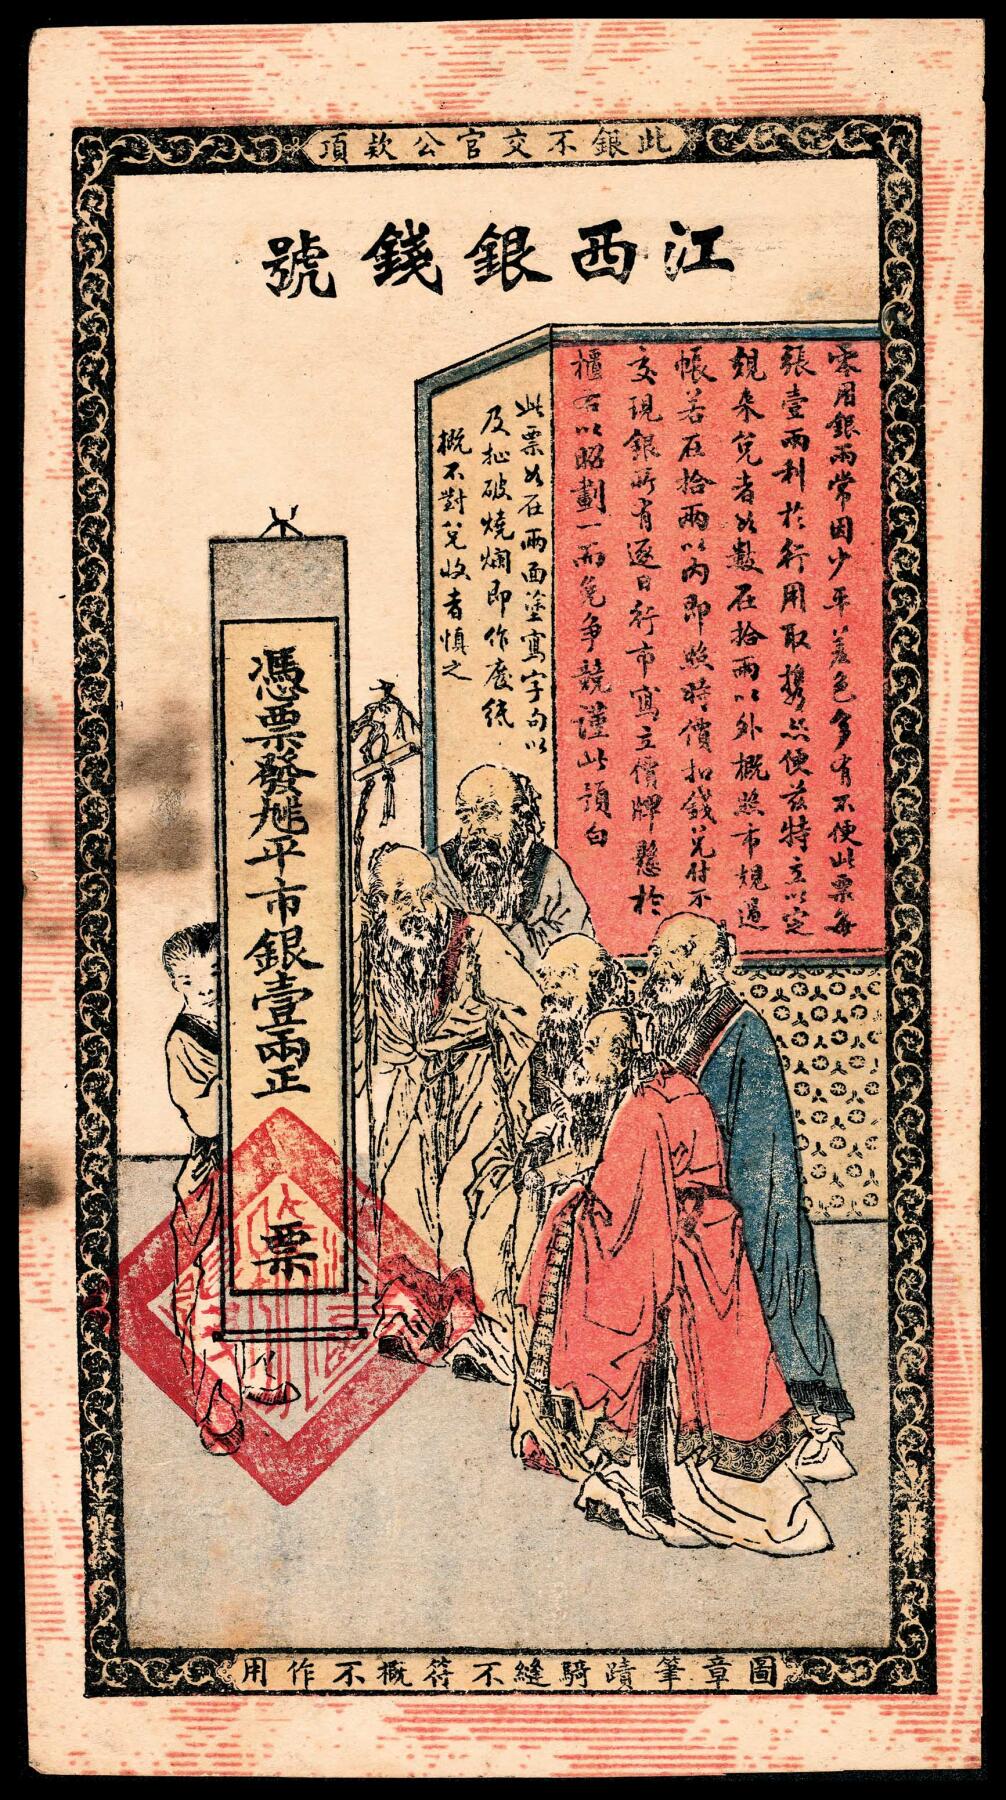 此銀不交官公款項
江西銀錢號
零用銀兩常因少平羞色多有不便此票每
張壹兩利於行用取攜亦便茲特立以定
規來兌者如數在拾兩以外概照市規過
帳若在拾兩以內即照時價扣錢兌付不
交現銀所有逐日行市寫立價牌懸於
櫃右以昭劃一而免争競謹此預白
此票如在兩面塗寫字句以
及扯破燒爛即作廢紙
概不對兌收者慎之
憑票發 平市銀壹兩正
票
圖章筆蹟騎縫不符概不作用